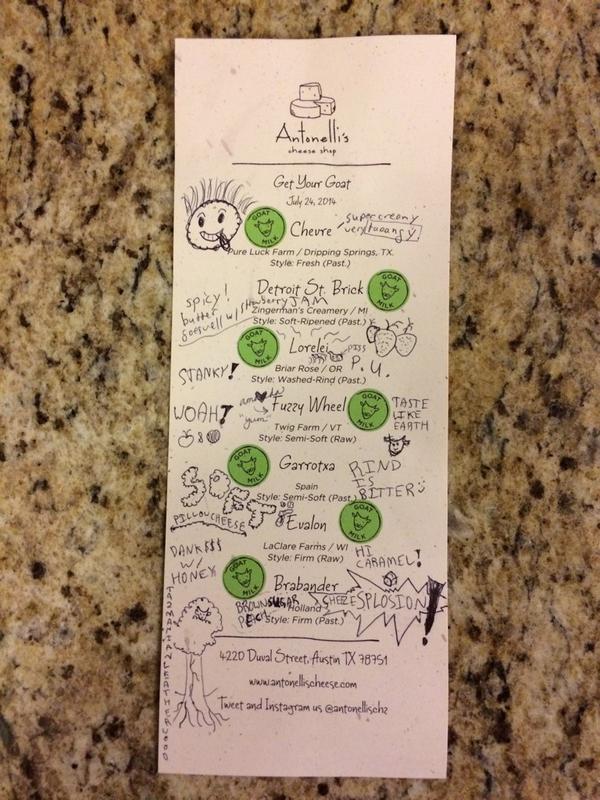 Antonelli's
cheese shop
Get Your Goat
July 24, 2014
GOAT MILK
Chevre
super creamy
very taaangy.
Pure Luck Farm / Dripping Springs, TX.
Style: Fresh (Past.)
Detroit St. Brick
GOAT MILK
spicy!
butter
goes well w/ strawberry JAM
Zingerman's Creamery / MI
Style: Soft-Ripened (Past.)
GOAT MILK
Lorelei
PISS
P.U.
Briar Rose / OR
STANKY!
Style: Washed-Rind (Past.)
WOAH?
"yum"
Fuzzy Wheel
GOAT MILK
TASTE
LIKE
EARTH
Twig Farm / VT
Style: Semi-Soft (Raw)
GOAT MILK
Garrotxa
RIND
IS
BITTER
Spain
Style: Semi-Soft (Past.)
SOFT
PILLOW CHEESE
Evalon
GOAT MILK
LaClare Farms / WI
Style: Firm (Raw)
DANK$$$
W/
HONEY
HI
CARAMEL!
GOAT MILK
Brabander
BROWN SUGAR
CHEEZESPLOSION!
Holland
Style: Firm (Past.)
4220 Duval Street, Austin TX 78751
www.antonellischeese.com
Tweet and Instagram us @antonellischz